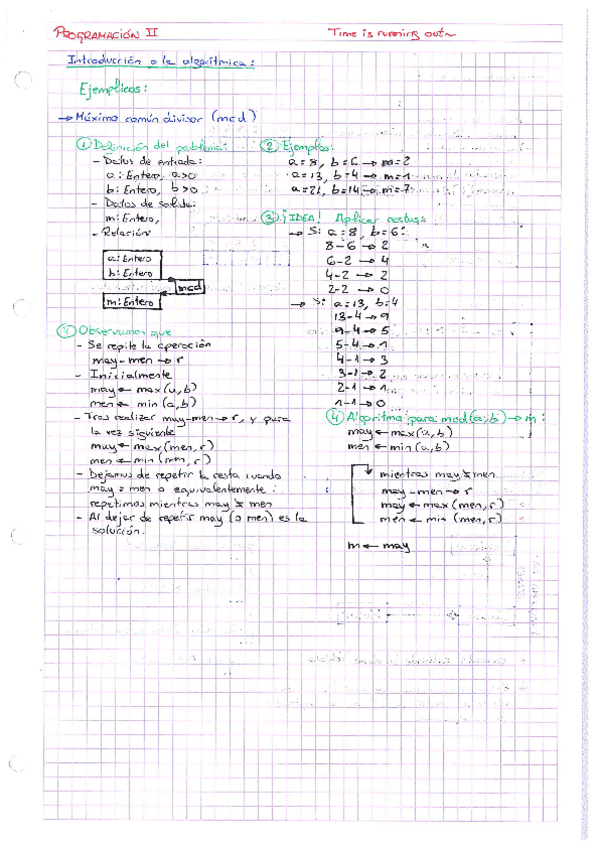 PROGRAMACIÓN II
Time is running out~
Introducción a la algorítmica:
Ejemplicos:
→ Máximo común divisor (mcd)
① Definición del problema:
- Datos de entrada:
a: Entero, a>0
b: Entero, b>0
- Datos de salida:
m: Entero,
- Relación
a: Entero
b: Entero
mcd
m: Entero
② Ejemplos:
a=8, b=6 → m=2
a=13, b=4 → m=1
a=21, b=14 → m=7
③ ¡IDEA! Aplicar restas
→ Si a=8, b=6:
8-6 → 2
6-2 → 4
4-2 → 2
2-2 → 0
→ Si a=13, b=4
13-4 → 9
9-4 → 5
5-4 → 1
4-1 → 3
3-1 → 2
2-1 → 1
1-1 → 0
④ Observamos que
- Se repite la operación
may-men → r
- Inicialmente
may ← max(a,b)
men ← min(a,b)
- Tras realizar may-men → r, y para
la vez siguiente
may ← max(men,r)
men ← min(men,r)
- Dejamos de repetir la resta cuando
may = men o equivalentemente:
repetimos mientras may ≠ men
- Al dejar de repetir may (o men) es la
solución.
④ Algoritmo para mcd(a,b) → m:
may ← max(a,b)
men ← min(a,b)
mientras may ≠ men
may-men → r
may ← max(men,r)
men ← min(men,r)
m ← may